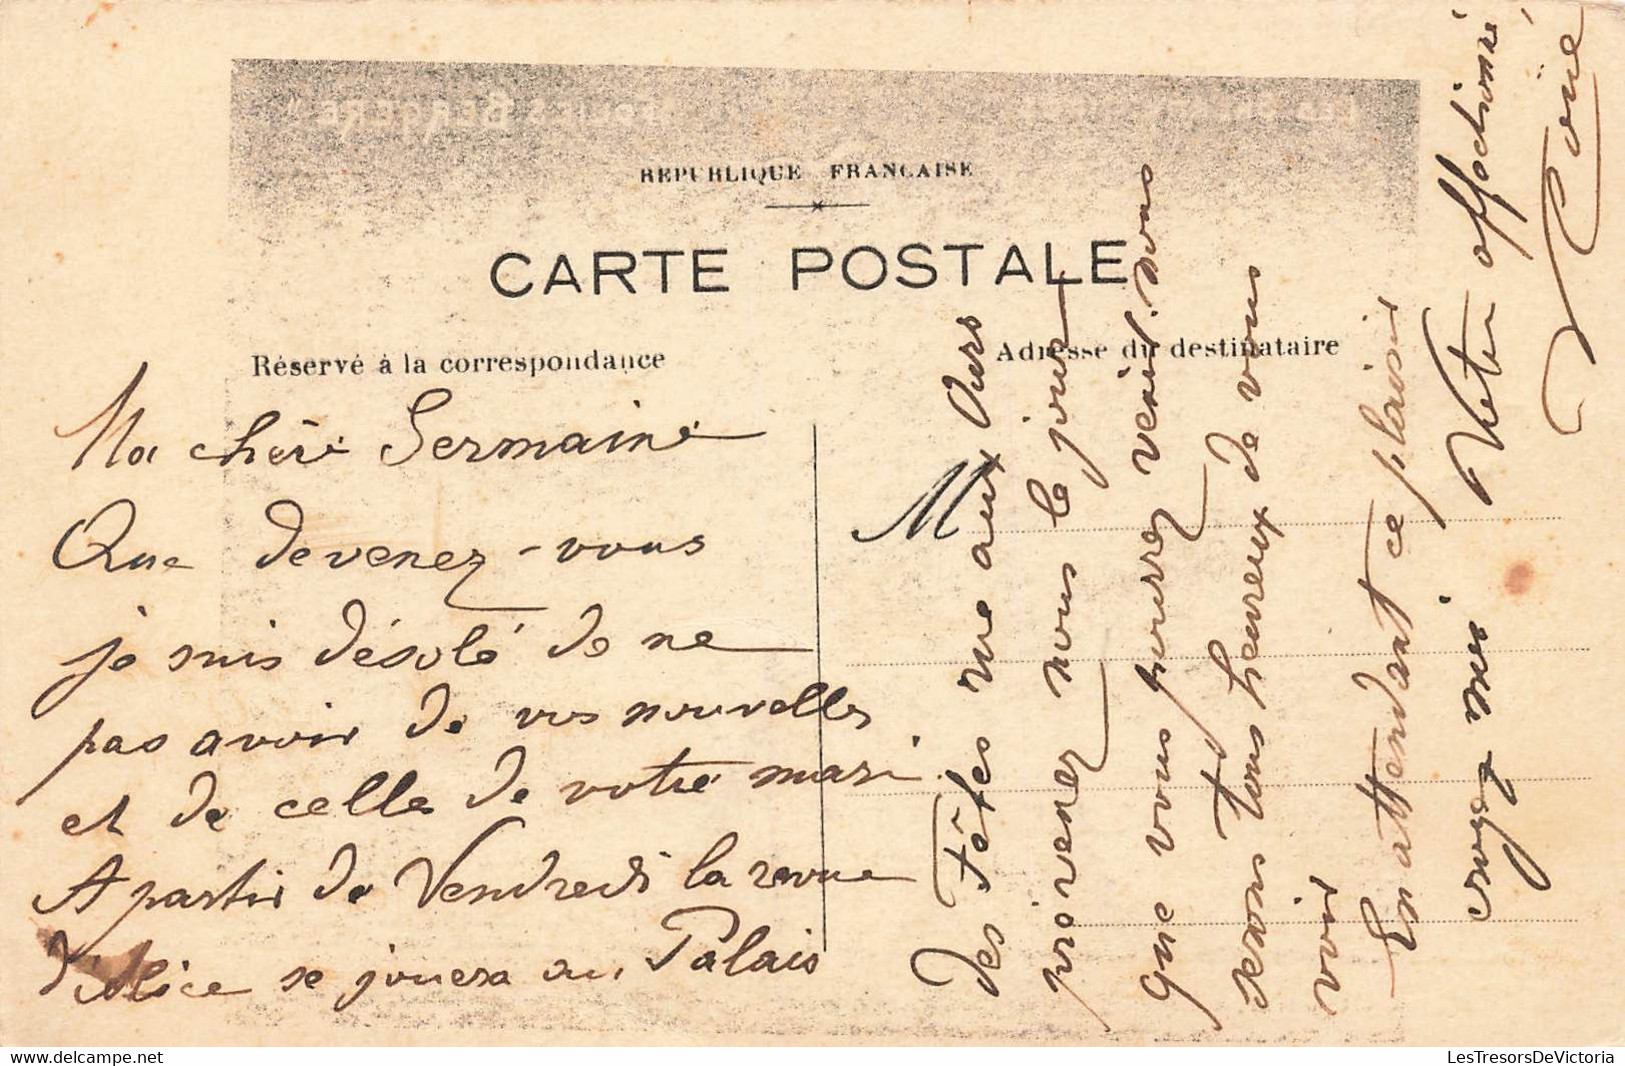 REPUBLIQUE FRANÇAISE
CARTE POSTALE
Réservé à la correspondance
Adresse du destinataire
Ma chère Germaine
Que devenez-vous
je suis désolé de ne
pas avoir de vos nouvelles
et de celle de votre mari
A partir de Vendredi la revue
d'Alice se jouera au Palais
M
des Fêtes rue aux Ours
prévenez nous le jour
que vous pourrez venir. nous
serons tous heureux de vous
voir
En attendant ce plaisir
croyez moi Votre affectionné
LesTresorsDeVictoria.com